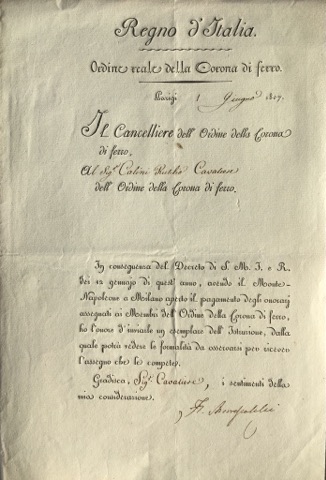 Regno d'Italia.
Ordine reale della Corona di ferro.
Parigi 1 Giugno 1807.
Il Cancelliere dell' Ordine della Corona
di ferro,
Al Sig.r Calini Cavaliere
dell' Ordine della Corona di ferro.
In conseguenza del Decreto di S. M. I. e R.
dei 12 gennajo di quest' anno, avendo il Monte-
Napoleone a Milano aperto il pagamento degli onorarj
assegnati ai Membri dell' Ordine della Corona di ferro,
ho l'onore d'inviarle un esemplare dell' Istruzione, dalla
quale potrà vedere le formalità da osservarsi per ricevere
l'assegno che le compete.
Gradisca, Sig.r Cavaliere, i sentimenti della
mia considerazione.